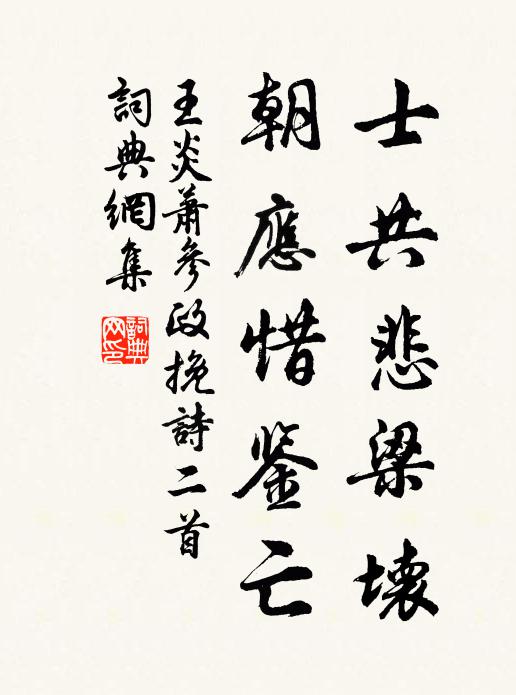 士共悲梁壞
朝應惜鉴亡
王炎蕭參政挽詩二首
詞典網集
詞典网印